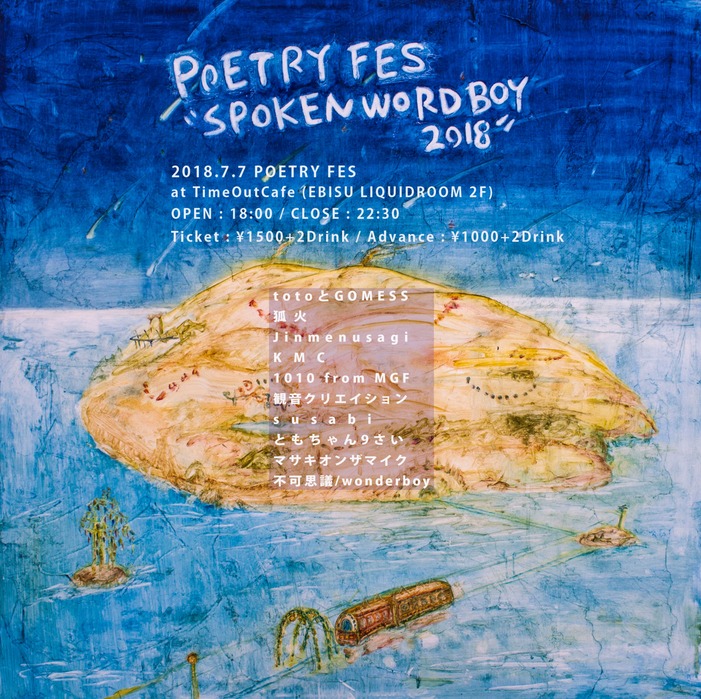 POETRY FES
"SPOKEN WORD BOY
2018"
2018.7.7 POETRY FES
at TimeOutCafe (EBISU LIQUIDROOM 2F)
OPEN : 18:00 / CLOSE : 22:30
Ticket : ¥1500+2Drink / Advance : ¥1000+2Drink
totoとGOMESS
狐火
Jinmenusagi
KMC
1010 from MGF
観音クリエイション
susabi
ともちゃん9さい
マサキオンザマイク
不可思議/wonderboy